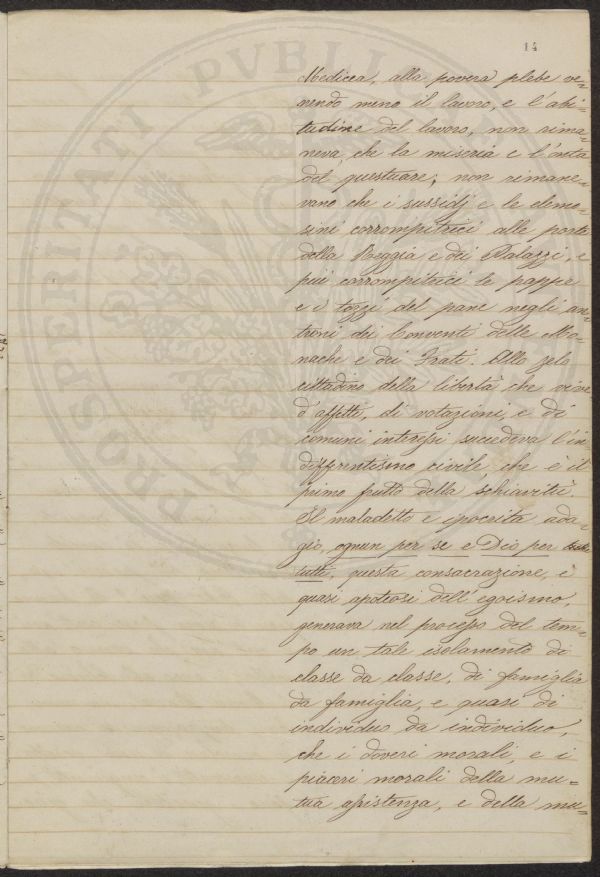 14
Medicea, alla povera plebe ve=
nendo meno il lavoro, e l'abi=
tudine del lavoro, non rima=
neva, che la miseria e l'onta
del questuare; non rimane=
vano che i sussidj e le elemo=
sini corrompitrici alle porte
della Reggia e dei Palazzi, e
più corrompitrici le pappe
e i tozzi del pane negli an=
troni dei Conventi delle Mo=
nache e dei Frati. Allo zelo
cittadino della libertà che vive
d'affetti, di votazioni, e di
comuni interessi succedeva l'in
differentismo civile, che è il
primo frutto della schiavitù.
Il maladetto e ipocrita ada=
gio, ognun per se e Dio per
tutti, questa consacrazione, e
quasi apoteosi dell'egoismo,
generava nel processo del tem=
po un tale isolamento di
classe da classe, di famiglia
da famiglia, e quasi di
individuo da individuo,
che i doveri morali, e i
piaceri morali della mu=
tua assistenza, e della mu=
PROSPERITATI PVBLICAE